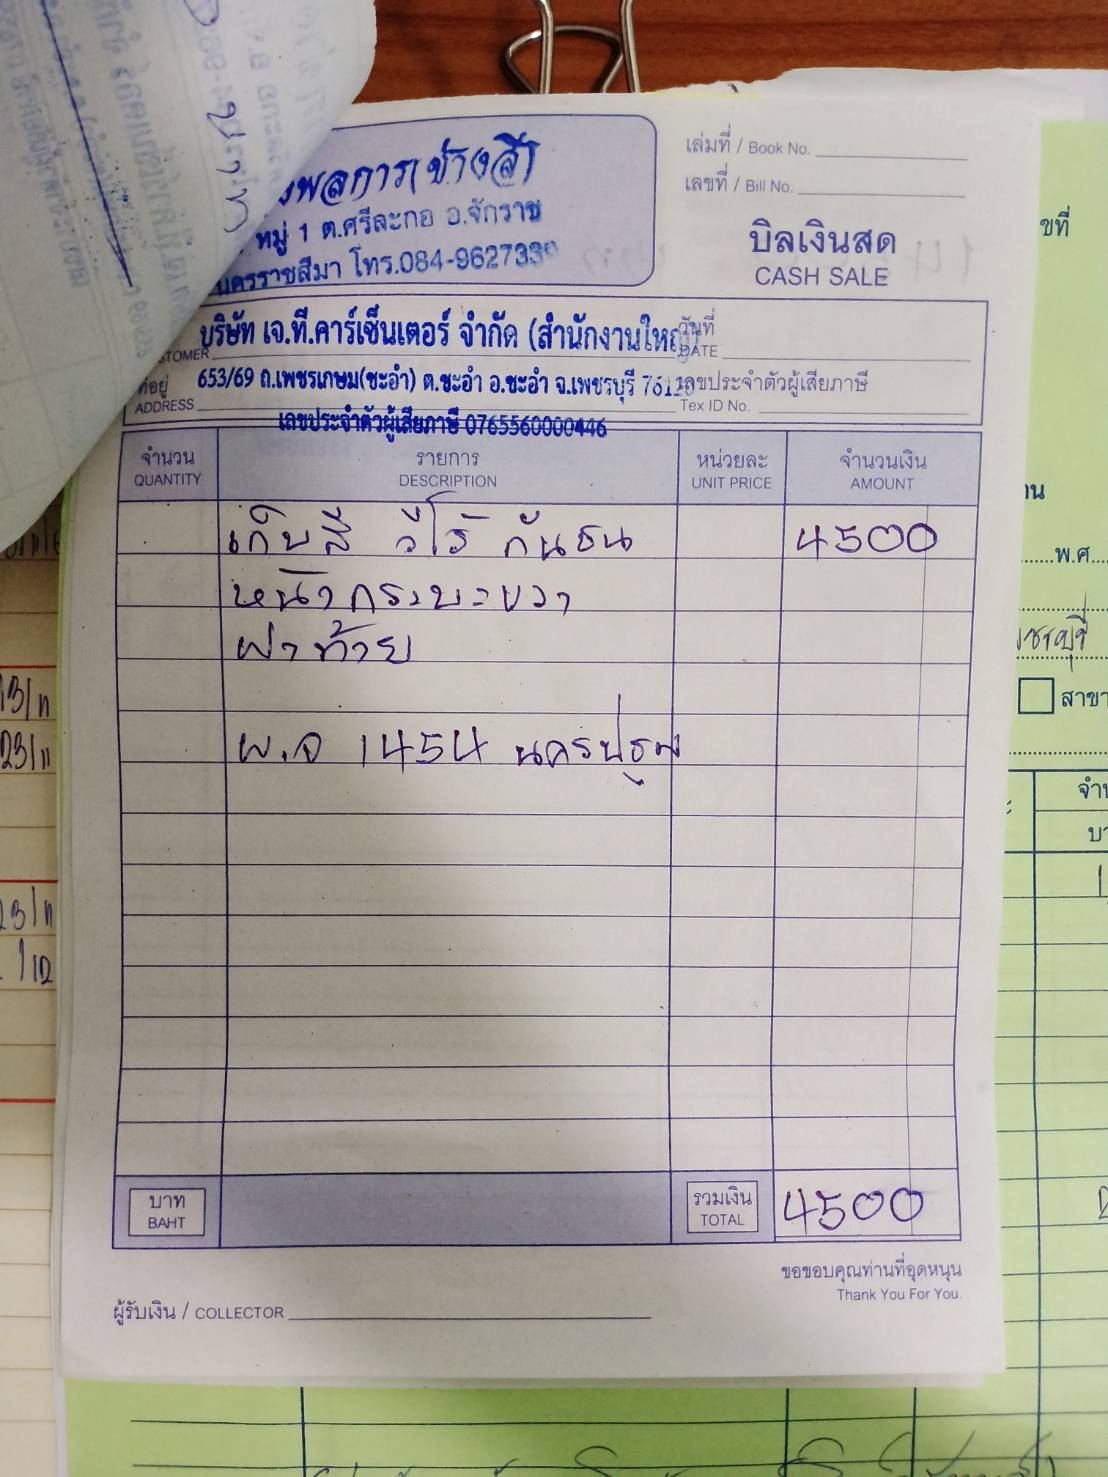 พลการ(ช่างสี)
หมู่ 1 ต.ศรีละกอ อ.จักราช
นครราชสีมา โทร.084-9627339
เล่มที่ / Book No.
เลขที่ / Bill No.
บิลเงินสด
CASH SALE
บริษัท เจ.ที.คาร์เซ็นเตอร์ จำกัด (สำนักงานใหญ่)
วันที่
DATE
653/69 ถ.เพชรเกษม(ชะอำ) ต.ชะอำ อ.ชะอำ จ.เพชรบุรี 76120
ที่อยู่
ADDRESS
เลขประจำตัวผู้เสียภาษี
Tex ID No.
เลขประจำตัวผู้เสียภาษี 0765560000446
จำนวน รายการ หน่วยละ จำนวนเงิน
QUANTITY DESCRIPTION UNIT PRICE AMOUNT
เก็บสี วีโร้ กันชน 4500
หน้า กระบะขวา
ฝาท้าย
ผ.จ 1454 นครปฐม
บาท
BAHT
รวมเงิน
TOTAL
4500
ขอขอบคุณท่านที่อุดหนุน
Thank You For You.
ผู้รับเงิน / COLLECTOR
ขที่
พ.ศ.
สาขา